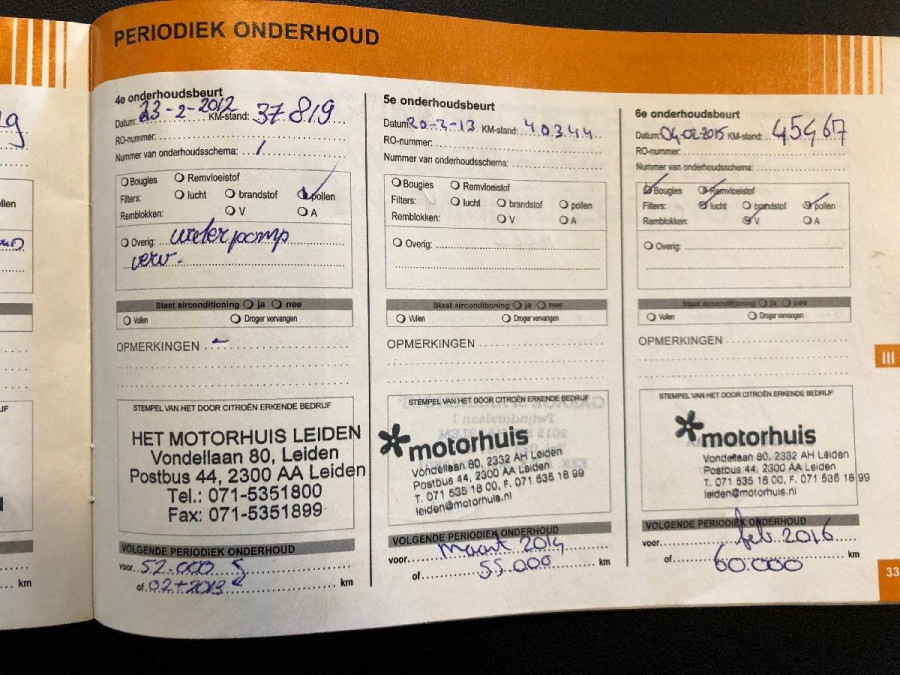 PERIODIEK ONDERHOUD
4e onderhoudsbeurt
Datum: 23-2-2012 KM-stand: 37819
RO-nummer:
Nummer van onderhoudsschema: 1
Bougies Remvloeistof
Filters: lucht brandstof pollen
Remblokken: V A
Overig: waterpomp
verv.
Staat airconditioning ja nee
Vullen Droger vervangen
OPMERKINGEN -
STEMPEL VAN HET DOOR CITROËN ERKENDE BEDRIJF
HET MOTORHUIS LEIDEN
Vondellaan 80, Leiden
Postbus 44, 2300 AA Leiden
Tel.: 071-5351800
Fax: 071-5351899
VOLGENDE PERIODIEK ONDERHOUD
voor 52.000 km
of 02-2013
5e onderhoudsbeurt
Datum: 20-2-13 KM-stand: 40344
RO-nummer:
Nummer van onderhoudsschema:
Bougies Remvloeistof
Filters: lucht brandstof pollen
Remblokken: V A
Overig:
Staat airconditioning ja nee
Vullen Droger vervangen
OPMERKINGEN
STEMPEL VAN HET DOOR CITROËN ERKENDE BEDRIJF
motorhuis
Vondellaan 80, 2332 AH Leiden
Postbus 44, 2300 AA Leiden
T. 071 535 18 00, F. 071 535 18 99
leiden@motorhuis.nl
VOLGENDE PERIODIEK ONDERHOUD
voor maart 2014
of 55.000 km
6e onderhoudsbeurt
Datum: 04,02,2015 KM-stand: 45467
RO-nummer:
Nummer van onderhoudsschema:
Bougies Remvloeistof
Filters: lucht brandstof pollen
Remblokken: V A
Overig:
Staat airconditioning ja nee
Vullen Droger vervangen
OPMERKINGEN
STEMPEL VAN HET DOOR CITROËN ERKENDE BEDRIJF
motorhuis
Vondellaan 80, 2332 AH Leiden
Postbus 44, 2300 AA Leiden
T. 071 535 18 00, F. 071 535 18 99
leiden@motorhuis.nl
VOLGENDE PERIODIEK ONDERHOUD
voor feb. 2016
of 60.000 km
III
33
km